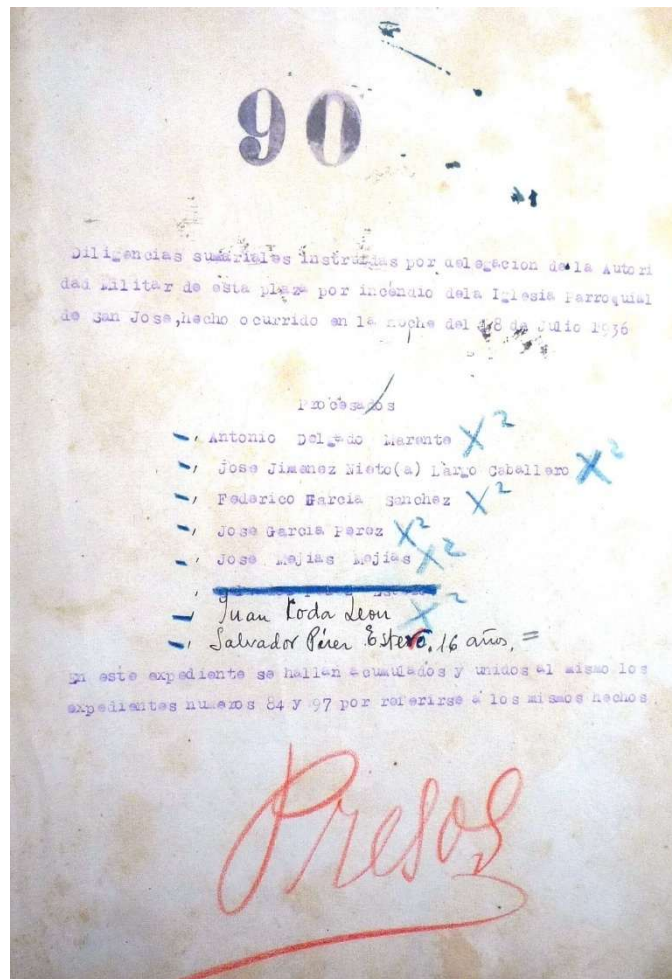 90
Diligencias sumariales instruidas por delegacion de la Autori
dad Militar de esta plaza por incendio dela Iglesia Parroquial
de San Jose,hecho ocurrido en la noche del 18 de Julio 1936
Procesados
Antonio Delgado Marante X2
Jose Jimenez Nieto(a) Largo Caballero X2
Federico Garcia Sanchez X2
Jose Garcia Perez X2
Jose Mejias Mejias X2
Juan Roda Leon X2
Salvador Pérez Estero, 16 años. =
En este expediente se hallan acumulados y unidos al mismo los
expedientes numeros 84 y 97 por referirse a los mismos hechos.
Presos